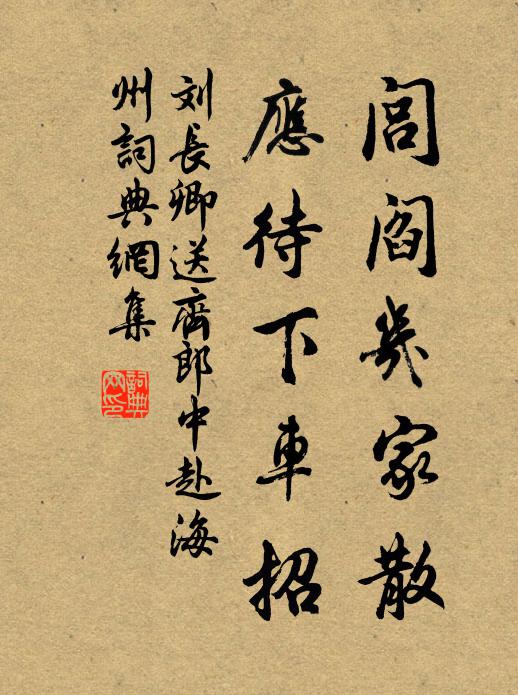 閭閻幾家散
應待下車招
刘長卿送齊郎中赴海
州詞典網集
詞典网印